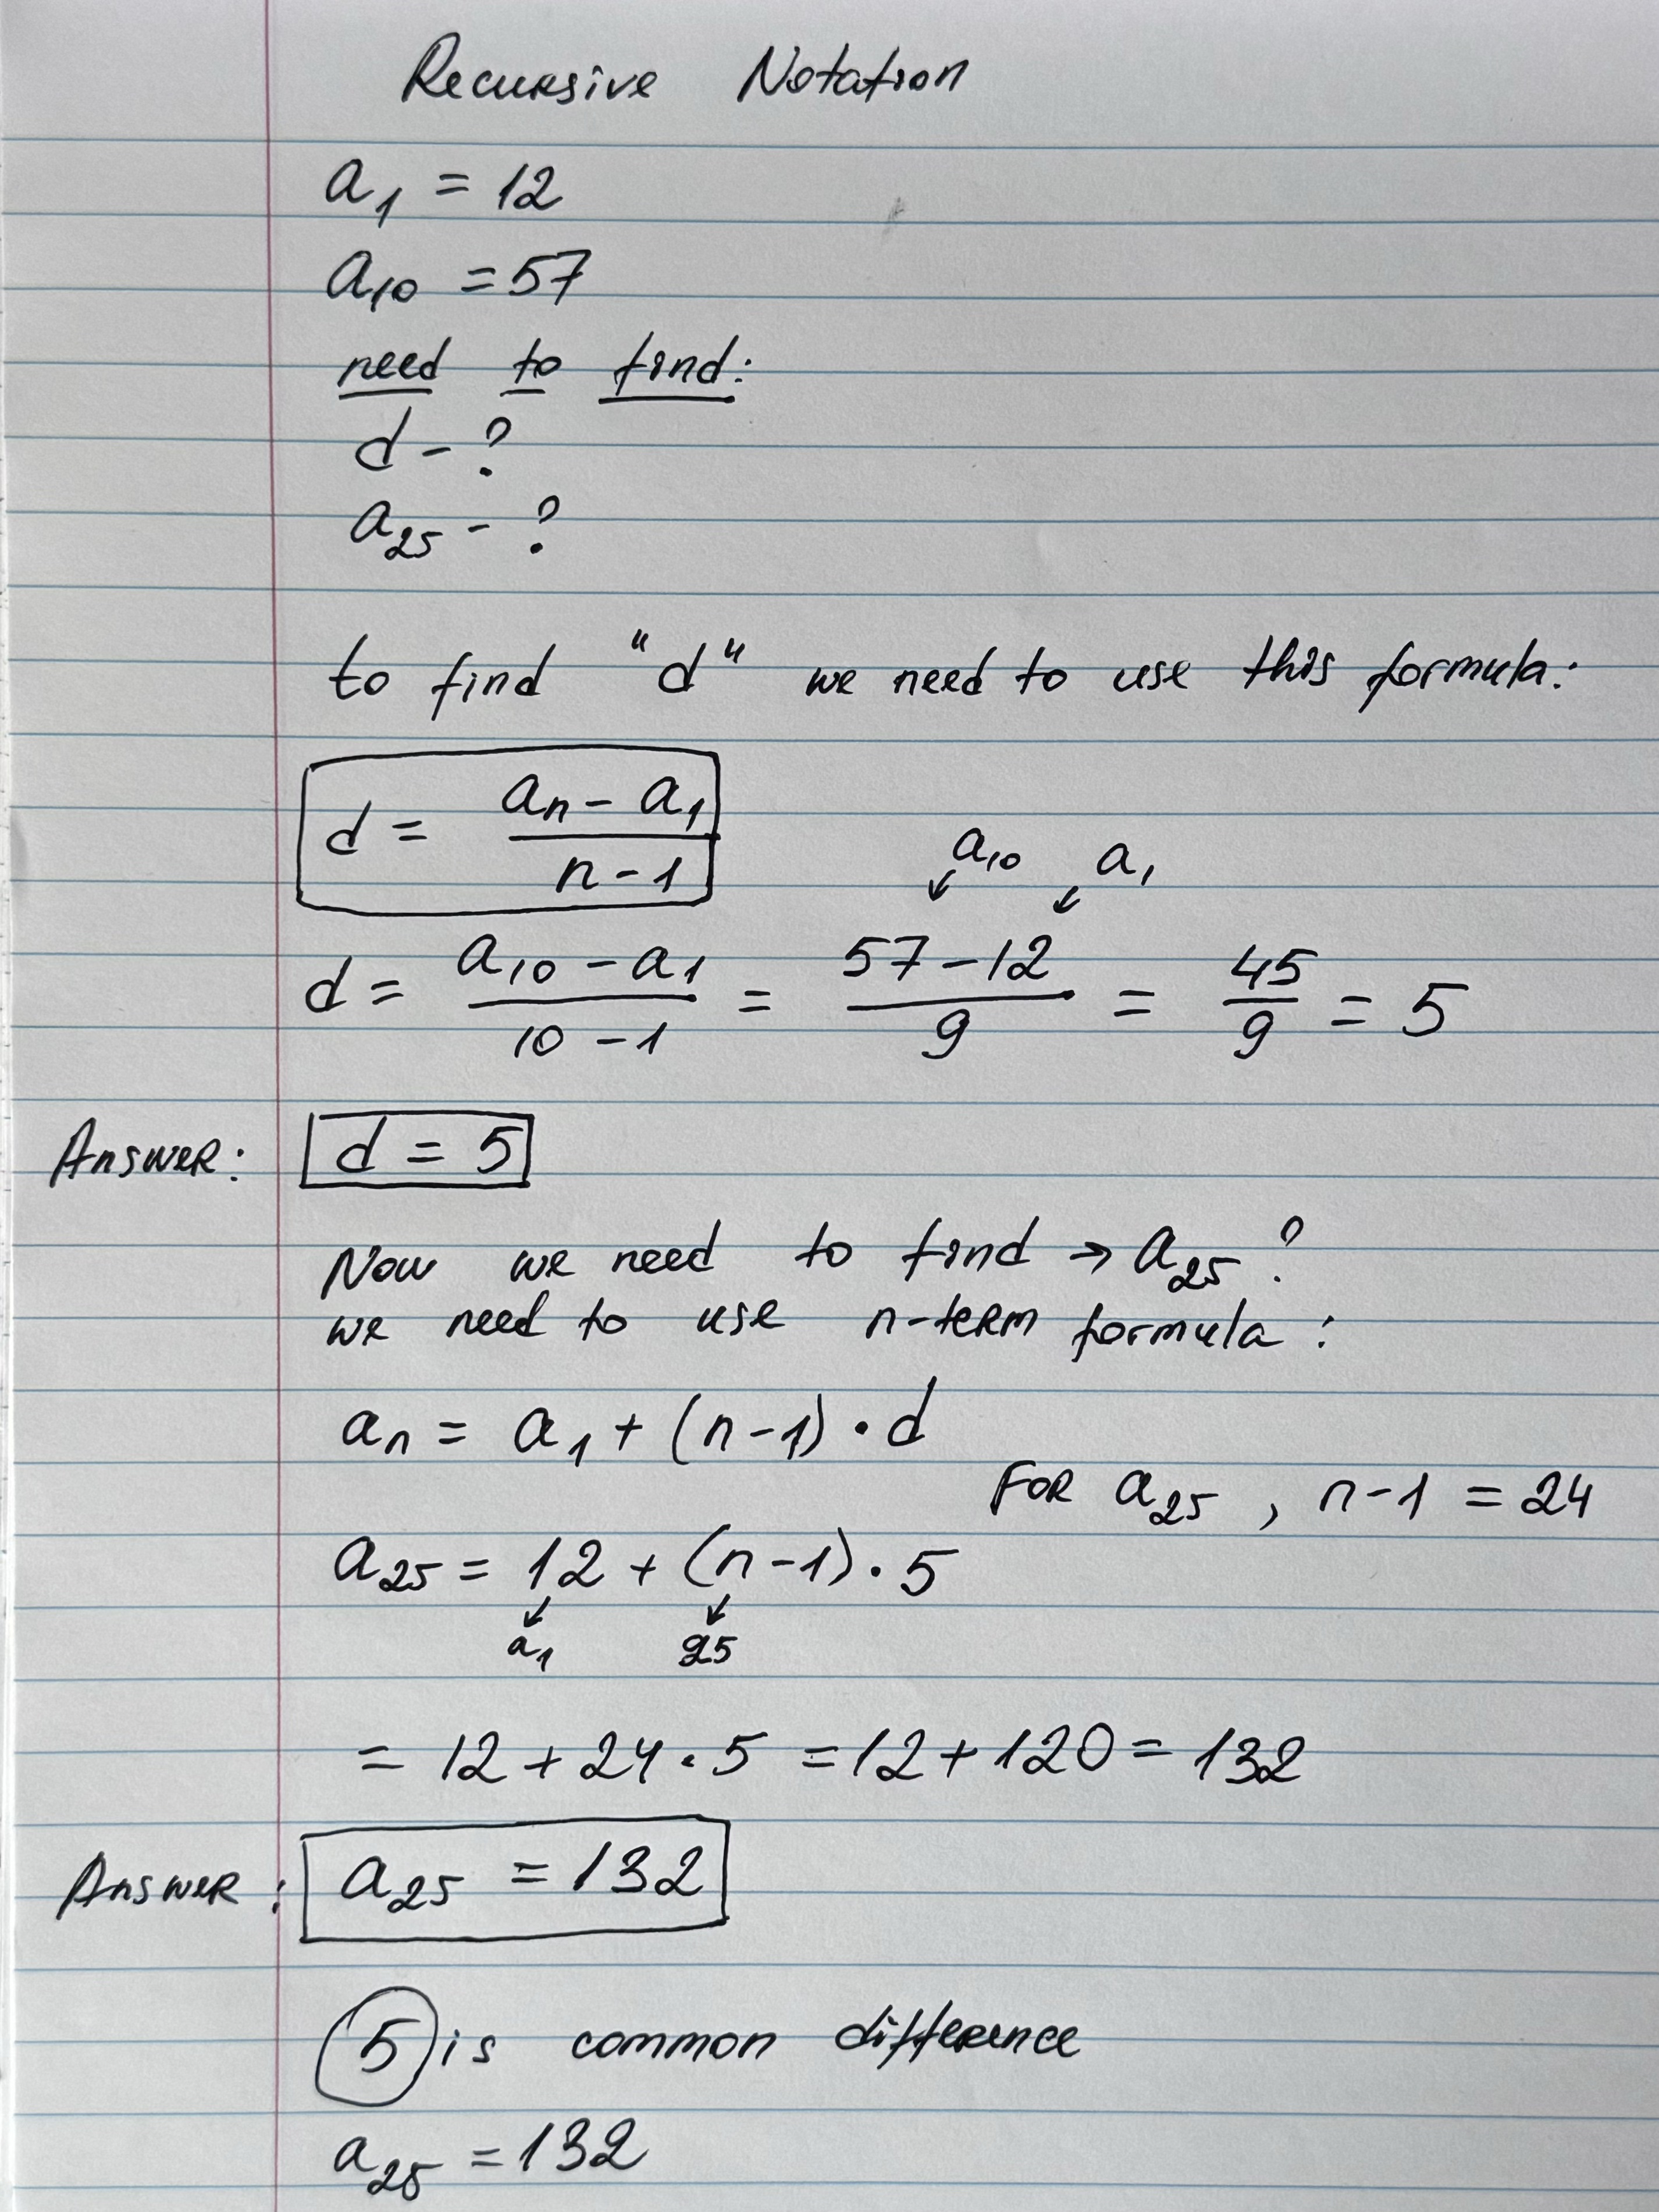 Recursive Notation
a₁ = 12
a₁₀ = 57
need to find:
d - ?
a₂₅ - ?
to find "d" we need to use this formula:
d = (aₙ - a₁) / (n - 1)
a₁₀ a₁
d = (a₁₀ - a₁) / (10 - 1) = (57 - 12) / 9 = 45 / 9 = 5
Answer: d = 5
Now we need to find → a₂₅ ?
we need to use n-term formula:
aₙ = a₁ + (n-1) · d
For a₂₅, n-1 = 24
a₂₅ = 12 + (n-1) · 5
a₁ 25
= 12 + 24 · 5 = 12 + 120 = 132
Answer: a₂₅ = 132
5 is common difference
a₂₅ = 132